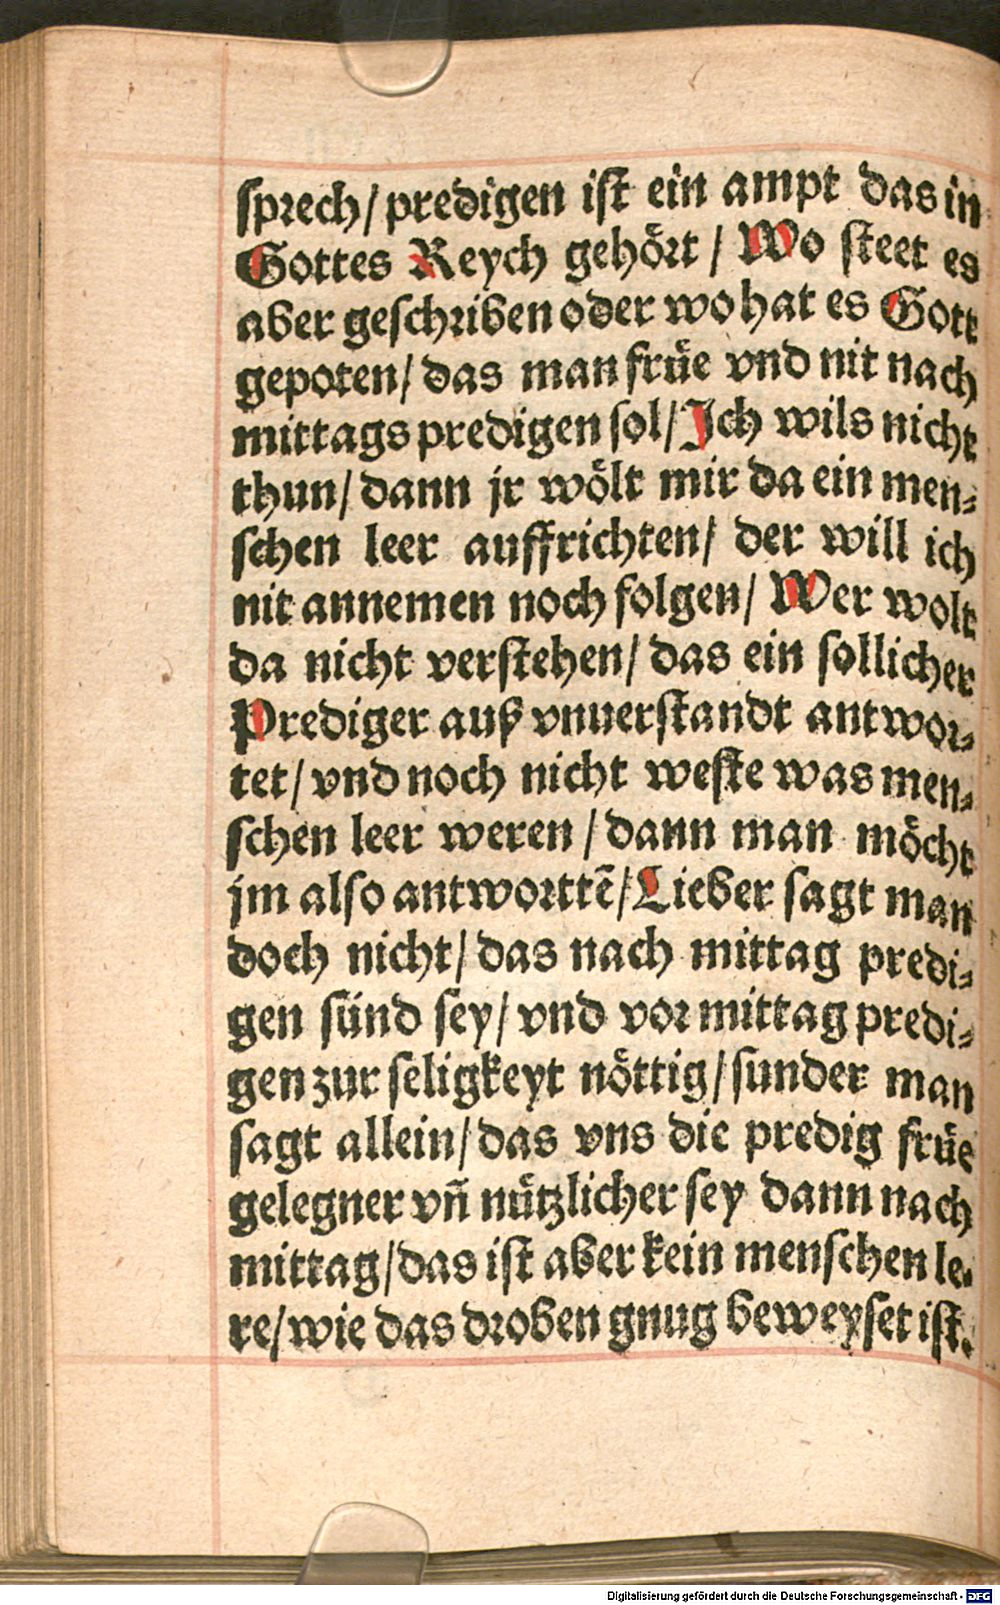 sprech/ predigen ist ein ampt das in
Gottes Reych gehört / Wo steet es
aber geschriben oder wo hat es Gott
gepoten/ das man früe vnd nit nach
mittags predigen sol/ Jch wils nicht
thun/ dann jr wölt mir da ein men-
schen leer auffrichten/ der will ich
nit annemen noch folgen/ Wer wolt
da nicht verstehen/ das ein sollicher
Prediger auß vnuerstandt antwor-
tet/ vnd noch nicht weste was men-
schen leer weren / dann man möcht
jm also antwortẽ/ Lieber sagt man
doch nicht/ das nach mittag predi-
gen sünd sey/ vnd vor mittag predi-
gen zur seligkeyt nöttig/ sunder man
sagt allein/ das vns die predig früe
gelegner vñ nützlicher sey dann nach
mittag/ das ist aber kein menschen le-
re/ wie das droben gnug beweyset ist.
Digitalisierung gefördert durch die Deutsche Forschungsgemeinschaft - DFG